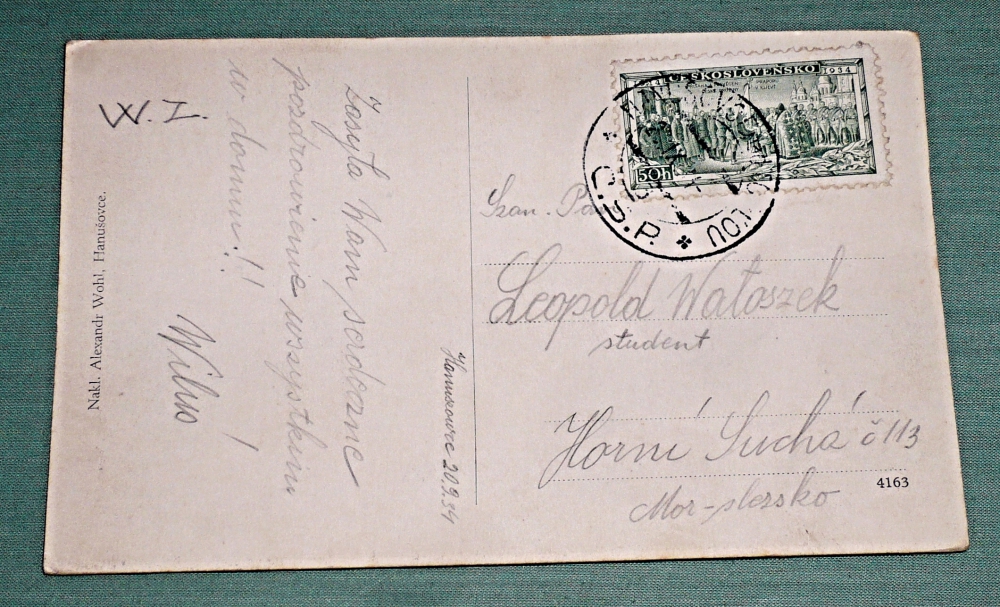 W. I.
Zasyła Wam serdeczne
pozdrowienie wszystkim
w domu!!
Wiluś!
Hanuszowce 20.9.34
Nakl. Alexandr Wohl, Hanušovce.
ČESKOSLOVENSKO 1934
50h
Č.S.P.
Szan. Pan
Leopold Watoszek
student
Horní Suchá č 113
Mor-slezsko
4163